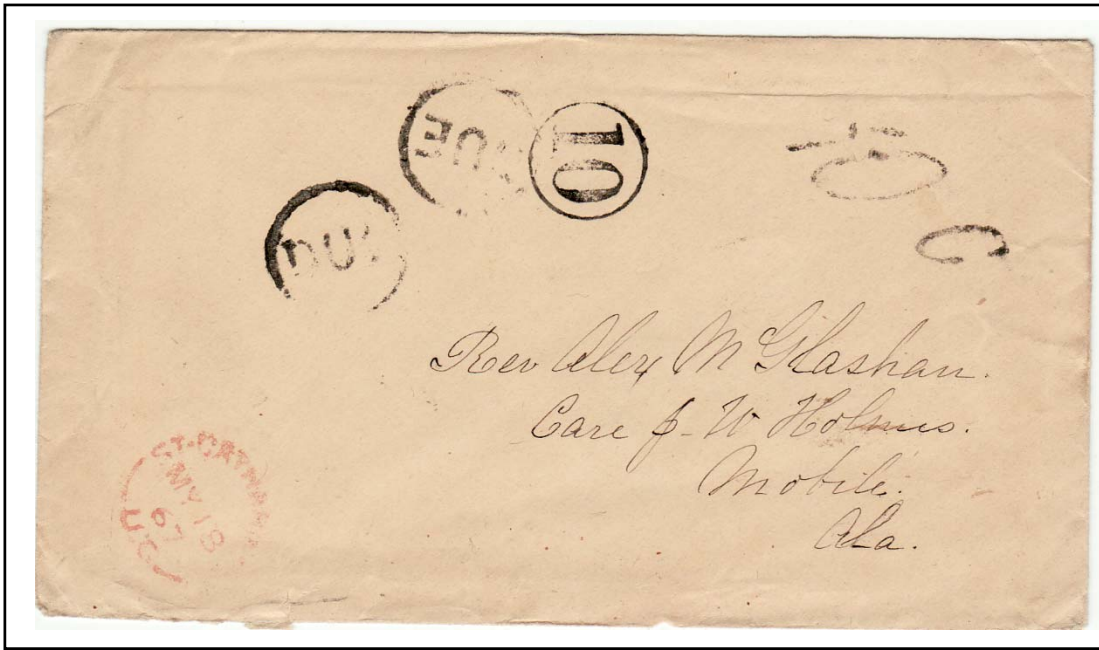 DUE
10
10
C
DU
Rev Alex McGlashan.
Care J. W Holmes.
Mobile.
Ala.
ST. CATHARINES
MY 18
67
U.C.